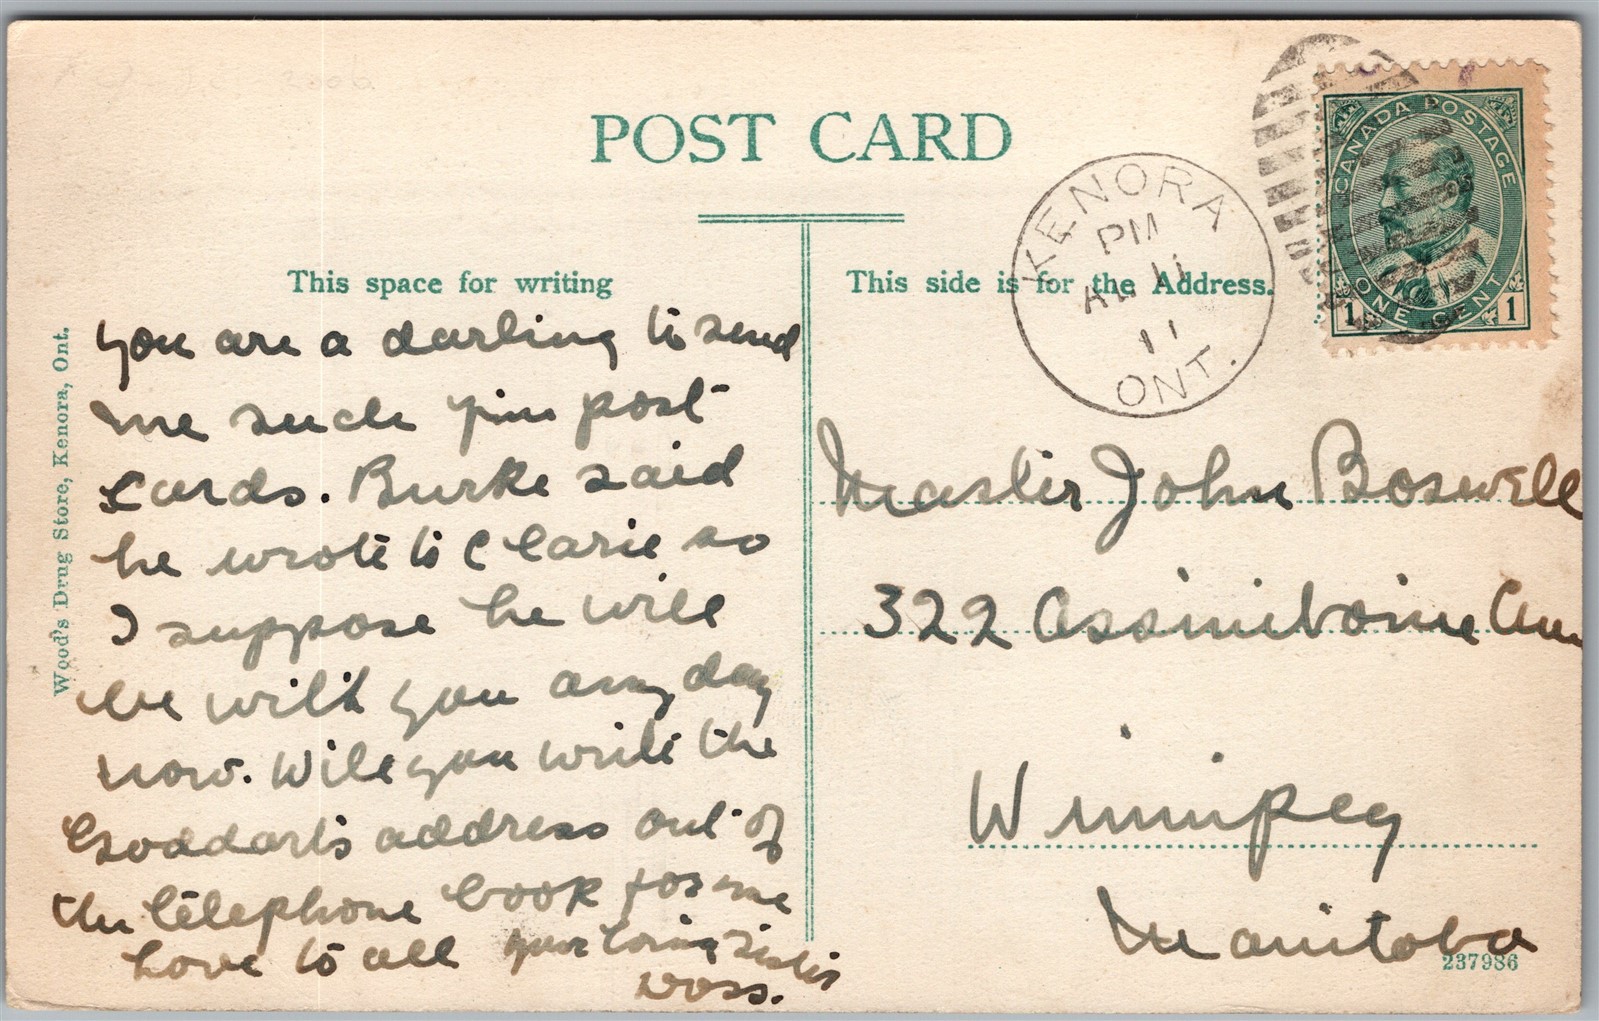 POST CARD
This space for writing
you are a darling to send
me such fine post
cards. Burke said
he wrote to Clarie so
I suppose he will
be with you any day
now. Will you write the
Goddart's address out of
the telephone book for me
Love to all your loving sister
Wood's Drug Store, Kenora, Ont.
This side is for the Address.
KENORA
PM
11
11
ONT.
CANADA POSTAGE
ONE CENT
1 1
Master John Boswell
322 Assiniboine Ave
Winnipeg
Manitoba
237986